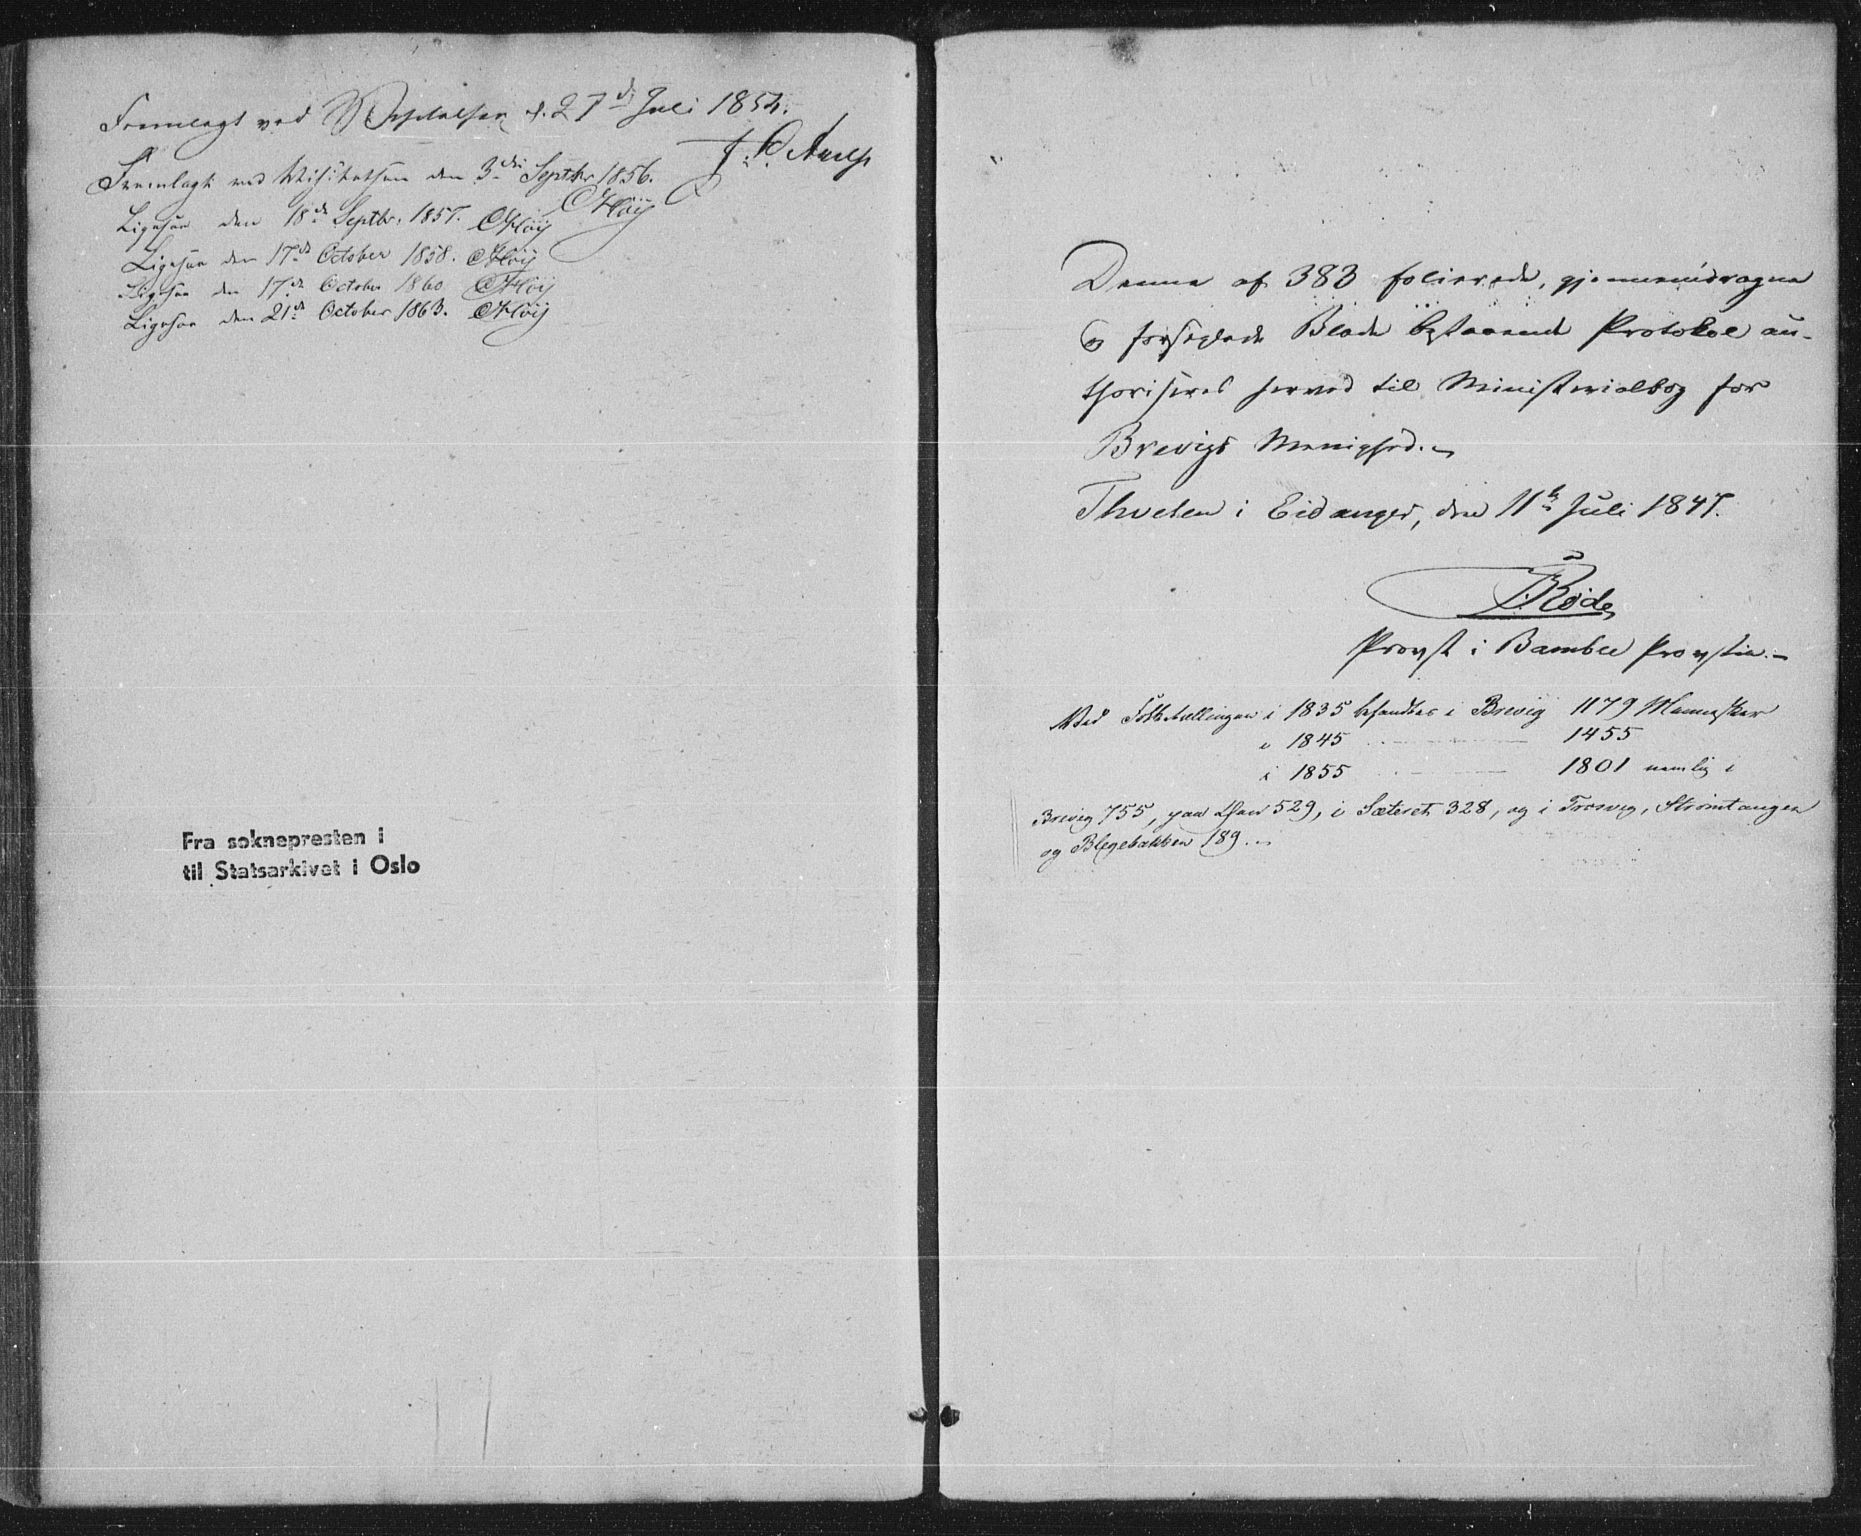 Fremlagt ved Visitatsen d. 27de Juli 1852.
Fremlagt ved Visitatsen den 3die Septbr 1856.
CHöij
Ligesaa den 18de Septbr. 1857. CHöij
Ligesaa den 17de October 1858. CHöij
Ligesaa den 17de October 1860 CHöij
Ligesaa den 21de October 1863. CHöij
Fra sokneprесten i
til Statsarkivet i Oslo
Denne af 383 folierede, gjennemdragne
og forseglede Blade bestaaende Protokol au-
thoriseres herved til Ministerialbog for
Brevigs Menighed.
Thveten i Eidanger, den 11te Juli 1847.
Røde
Provst i Bamble Provstie.
Ved Folketællingen i 1835 befandtes i Brevig 1179 Mennesker
i 1845 1455
i 1855 1801 nemlig i
Brevig 755, paa Øen 529, i Sæteret 328, og i Trosvig, Strømtangen
og Blegebakken 189.